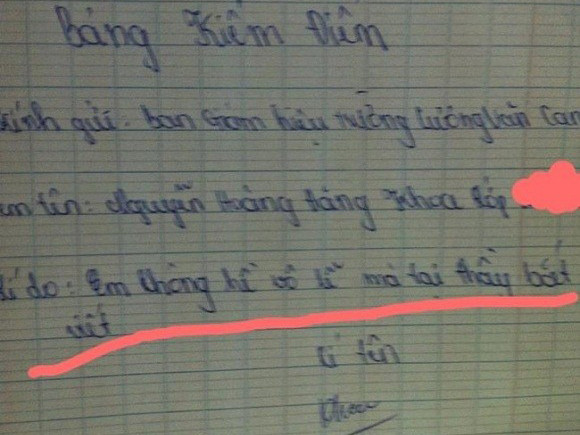 Bảng Kiểm Điểm
Kính gửi: ban Giám hiệu trường Lương Văn Can
em tên: Nguyễn Hoàng Đăng Khoa lớp
Lí do: Em không hề vô lễ mà tại thầy bắt
viết
Kí tên
Khoa